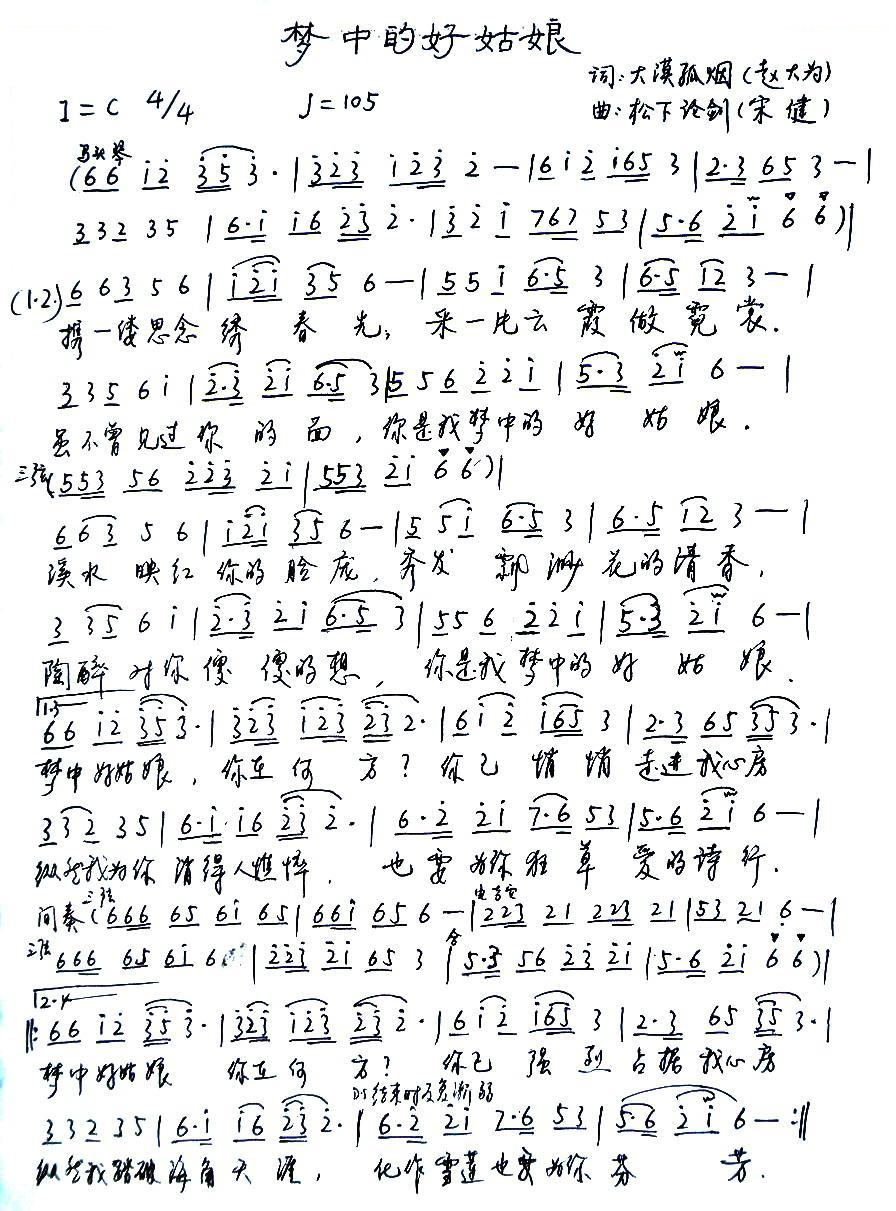 梦中的好姑娘
词:大漠孤烟(赵大为)
1=C 4/4 ♩=105
曲:松下论剑(宋健)
马头琴
(66 i2 353·|323 123 2—|6i2 i65 3|2·3 65 3—|
332 35 |6·i i6 23 2·|32i 767 53|5·6 2i 6 6)|
(1.2.) 6 63 5 6|i2i 35 6—|55i 6·5 3|6·5 i2 3—|
携一缕思念绣春光,采一片云霞做霓裳.
3 35 6 i|2·3 2i 6·5 3|5 56 22i|5·3 2i 6—|
虽不曾见过你的面,你是我梦中的好姑娘.
三弦(553 56 223 2i|553 2i 6 6)|
6 63 5 6|i2i 35 6—|5 5i 6·5 3|6·5 i2 3—|
溪水映红你的脸庞,秀发飘渺花的清香,
3 35 6 i|2·3 2i 6·5 3|55 6 22i|5·3 2i 6—|
陶醉对你傻傻的想,你是我梦中的好姑娘.
1.3
66 i2 353·|323 123 23 2·|6i2 i65 3|2·3 65 353·|
梦中好姑娘,你在何方?你已悄悄走进我心房
332 35|6·i i6 23 2·|6·2 2i 7·6 53|5·6 2i 6—|
纵然我为你消得人憔悴.也要为你狂草爱的诗行.
三弦 电吉它
间奏(666 65 6i 65|66i 65 6—|223 21 223 21|53 21 6—|
三弦 666 65 6i 6|223 2i 65 3|合 5·3 56 23 2i|5·6 2i 6 6)|
2.4
‖:66 i2 353·|323 123 23 2·|6i2 i65 3|2·3 65 353·|
梦中好姑娘 你在何方?你已强烈占据我心房
DS结束时反复渐弱
332 35|6·i i6 23 2·|6·2 2i 7·6 53|5·6 2i 6—:‖
纵然我踏破海角天涯,化作雪莲也要为你芬芳.